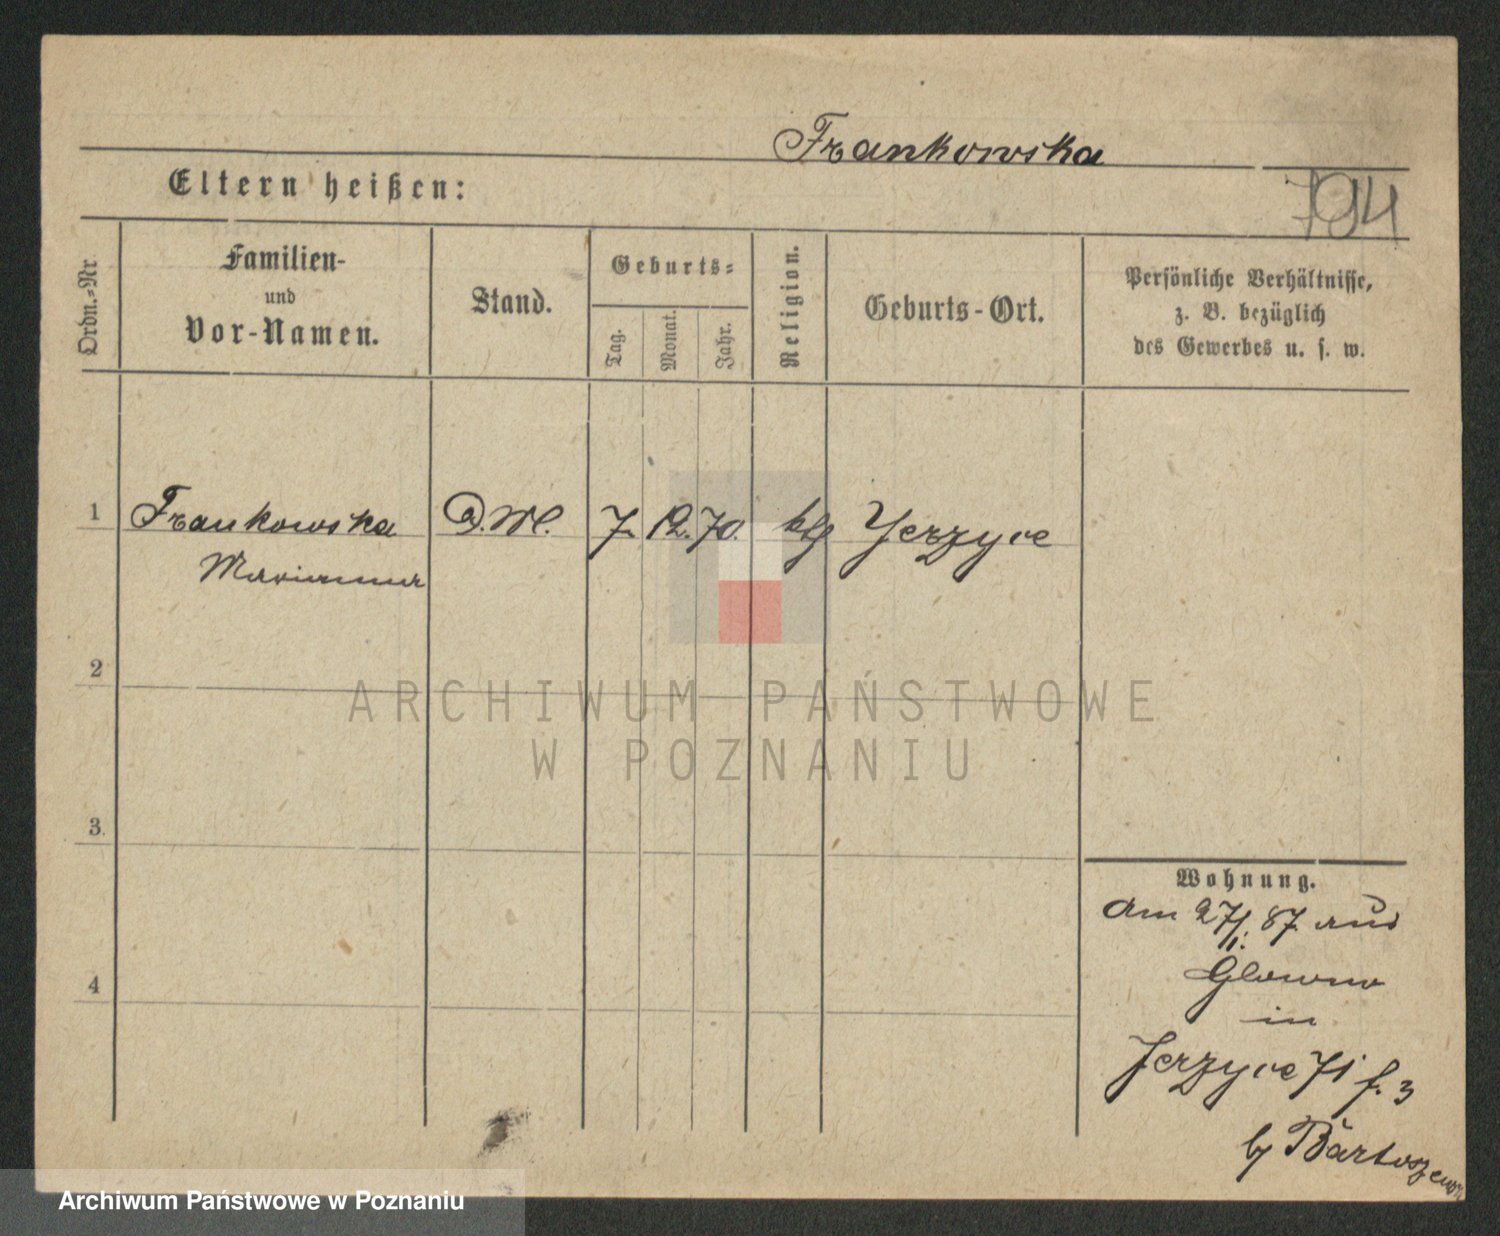 Frankowska
Eltern heißen:
794
Ordn.-Nr
Familien-
und
Vor-Namen.
Stand.
Geburts-
Tag.
Monat.
Jahr.
Religion.
Geburts-Ort.
Persönliche Verhältnisse,
z. B. bezüglich
des Gewerbes u. s. w.
1 Frankowska D.M. 7. 12. 70. ktl Jerzyce
Marianna
2
ARCHIWUM PAŃSTWOWE
W POZNANIU
3.
4
Wohnung.
Am 27/1. 87. aus
Glowno
in
Jerzyce 71 f. 3
by
Archiwum Państwowe w Poznaniu